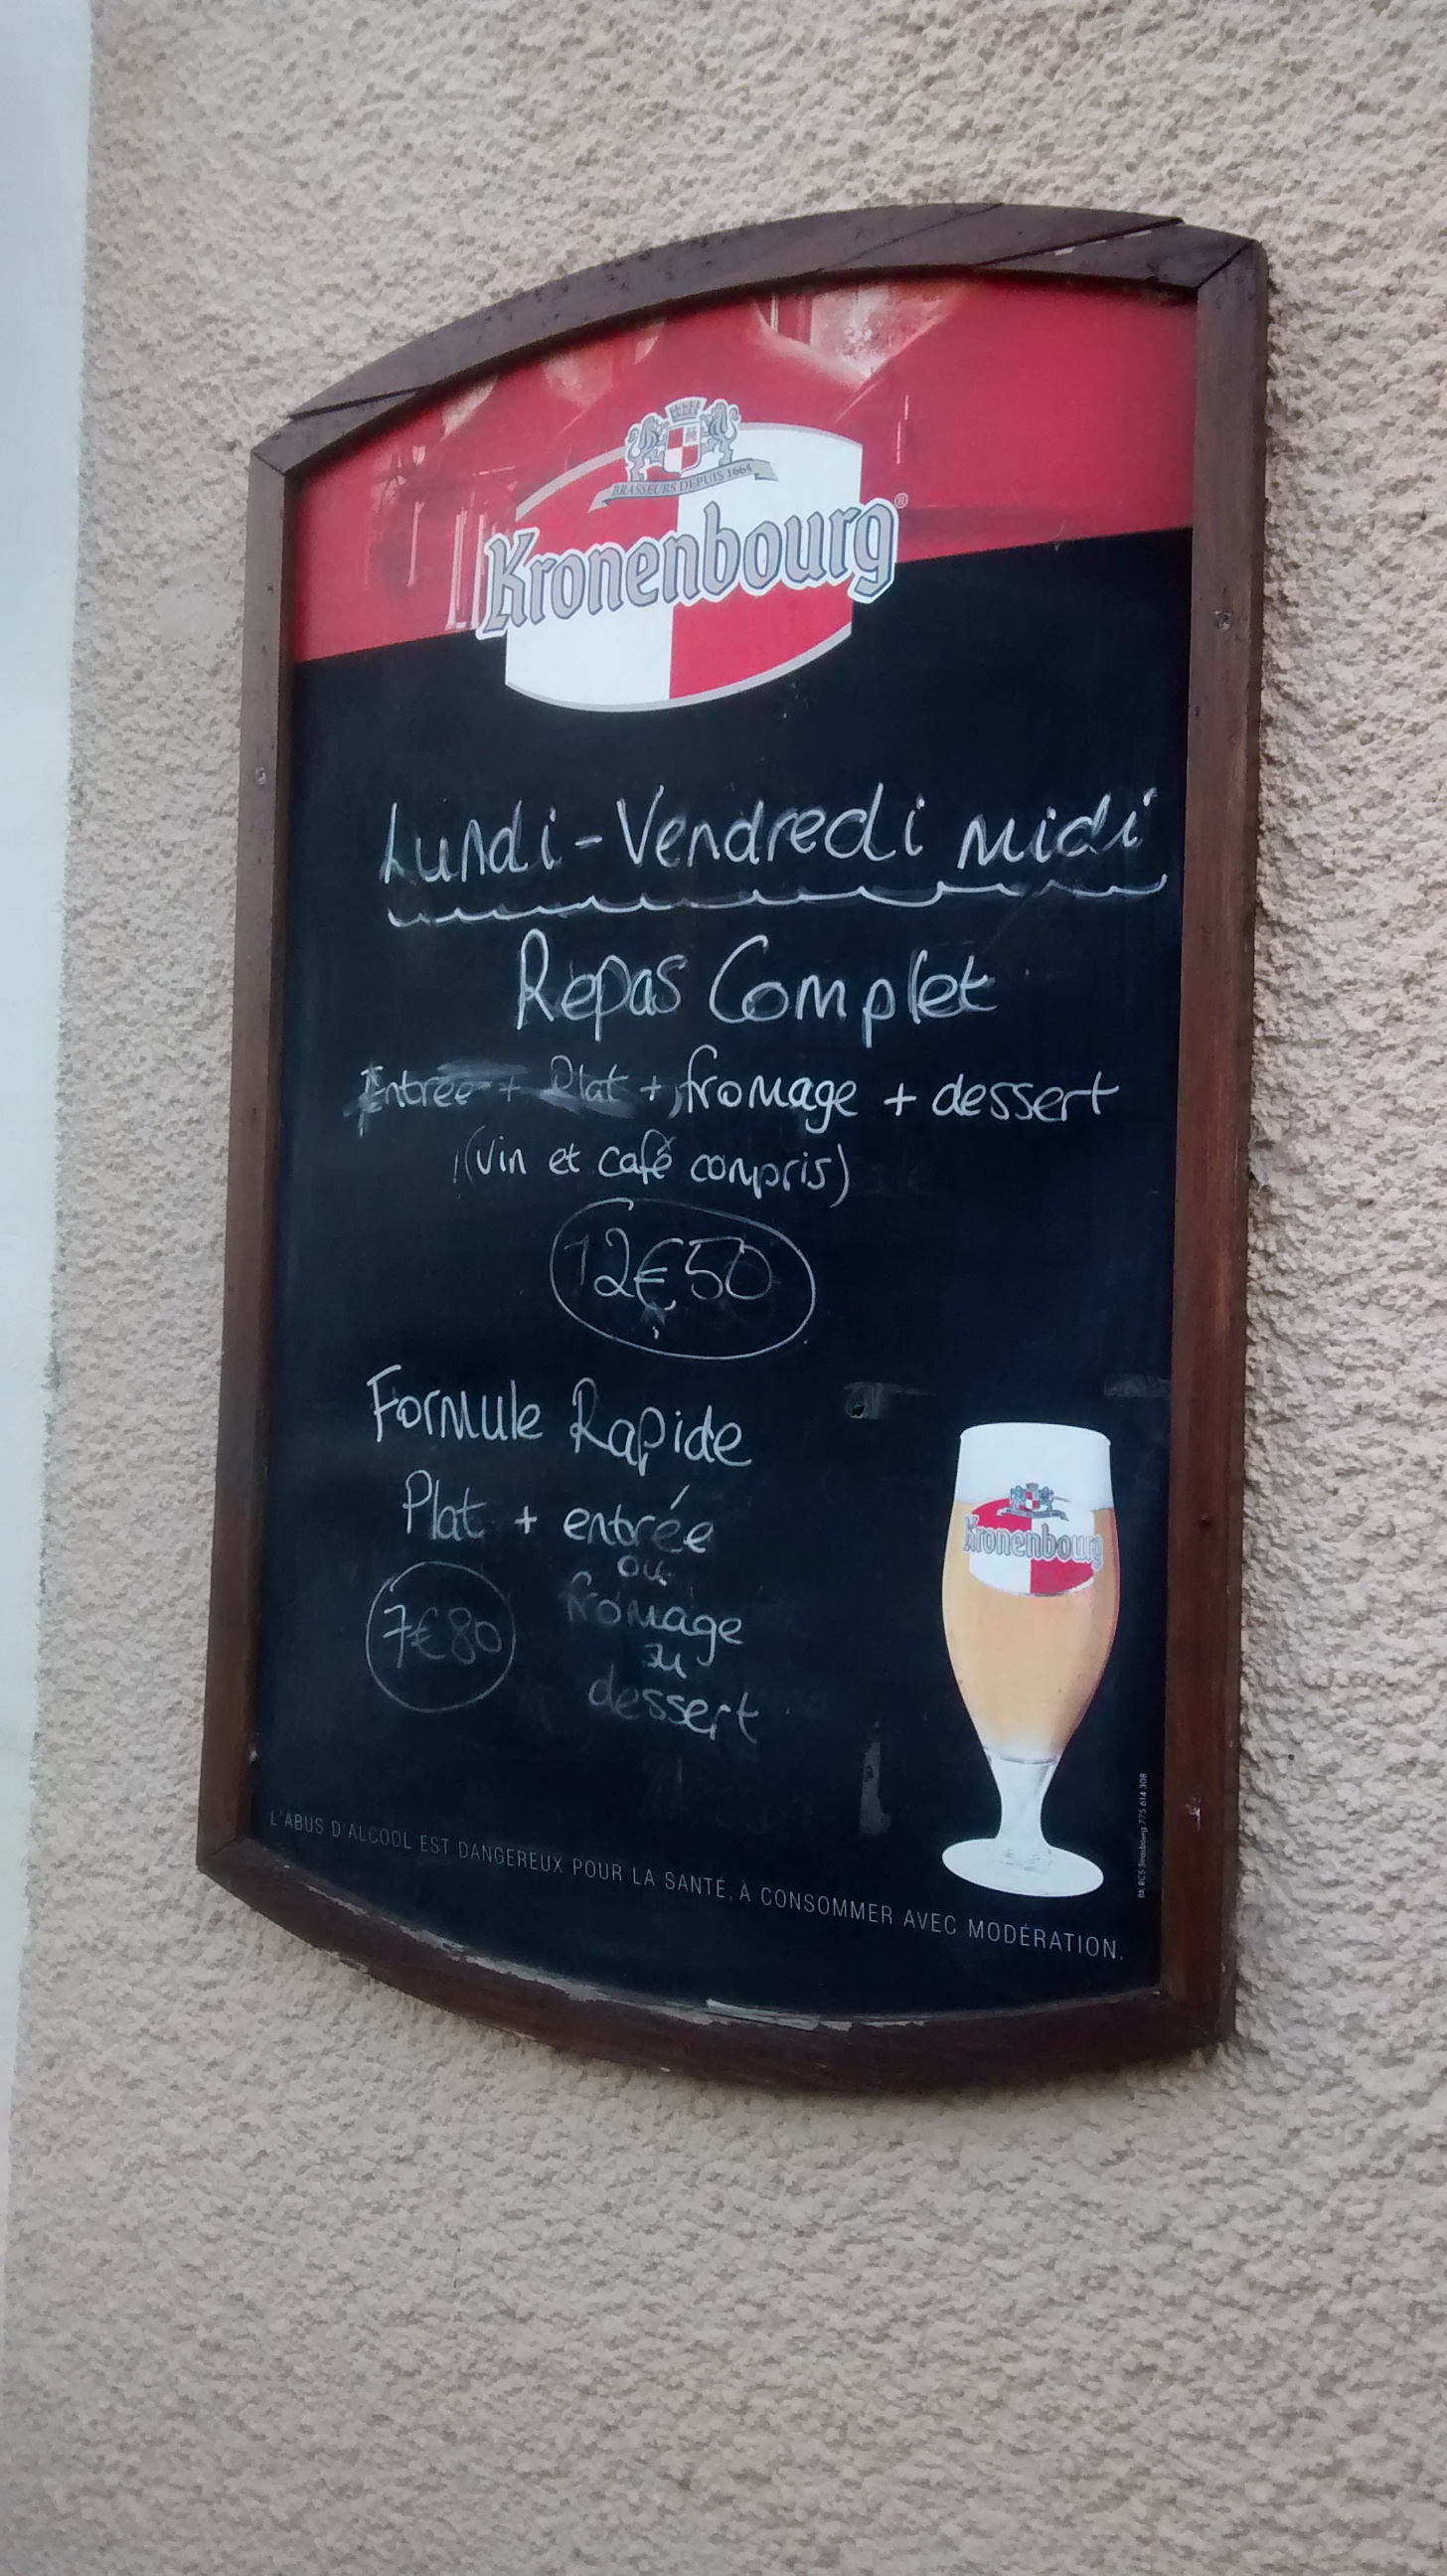 BRASSEURS DEPUIS 1664
Kronenbourg®
Lundi-Vendredi midi
Repas Complet
Entrée + Plat + fromage + dessert
(vin et café compris)
12€50
Formule Rapide
Plat + entrée
ou
7€80 fromage
ou
dessert
Kronenbourg
L'ABUS D'ALCOOL EST DANGEREUX POUR LA SANTÉ, À CONSOMMER AVEC MODÉRATION.
BK RCS Strasbourg 775 614 308